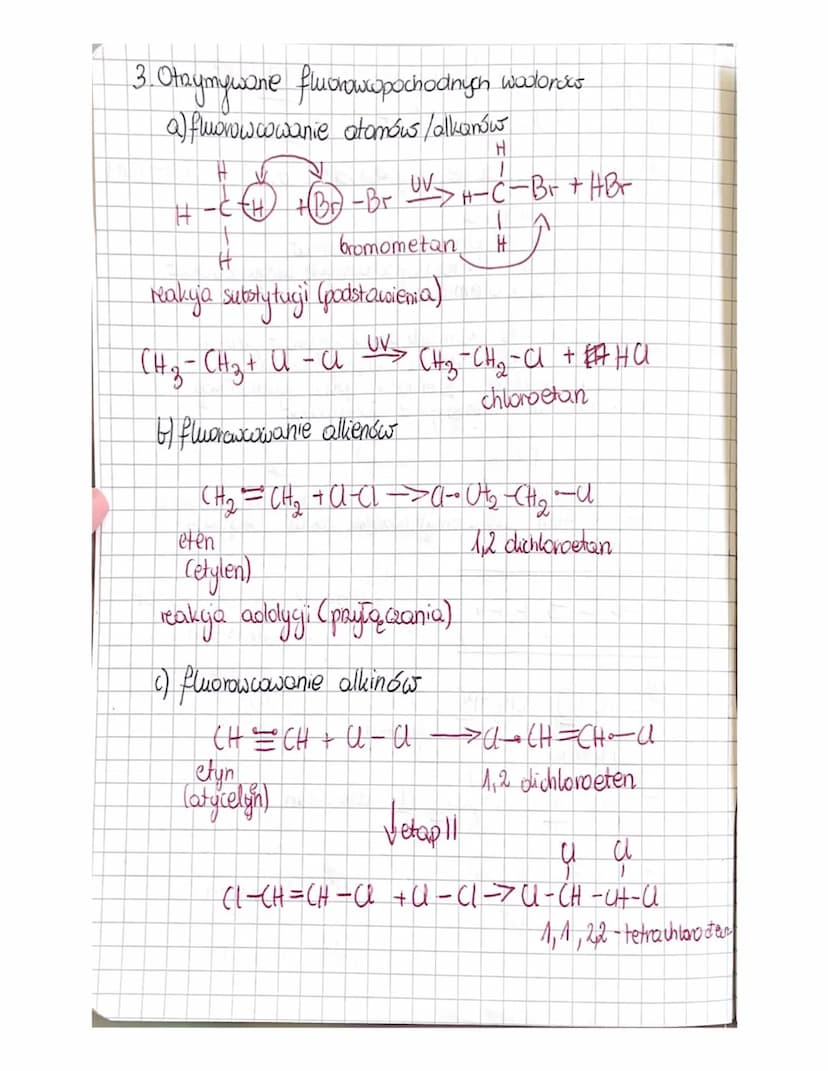 3. Otrzymywanie fluorowcopochodnych węglowodorów
a) fluorowcowanie atomów/alkanów
H H
H - C - H + Br - Br UV→ H - C - Br + HBr
H bromometan H
reakcja substytucji (podstawienia)
CH3 - CH3 + Cl - Cl UV→ CH3 - CH2 - Cl + HCl
chloroetan
b) fluorowcowanie alkenów
CH2 = CH2 + Cl - Cl → Cl - CH2 - CH2 - Cl
eten 1,2 dichloroetan
(etylen)
reakcja addycji (przyłączania)
c) fluorowcowanie alkinów
CH ≡ CH + Cl - Cl → Cl - CH = CH - Cl
etyn 1,2 dichloroeten
(atycelyn)
↓ etap II
Cl Cl
Cl - CH = CH - Cl + Cl - Cl → Cl - CH - CH - Cl
1,1,2,2 - tetrachloroetan